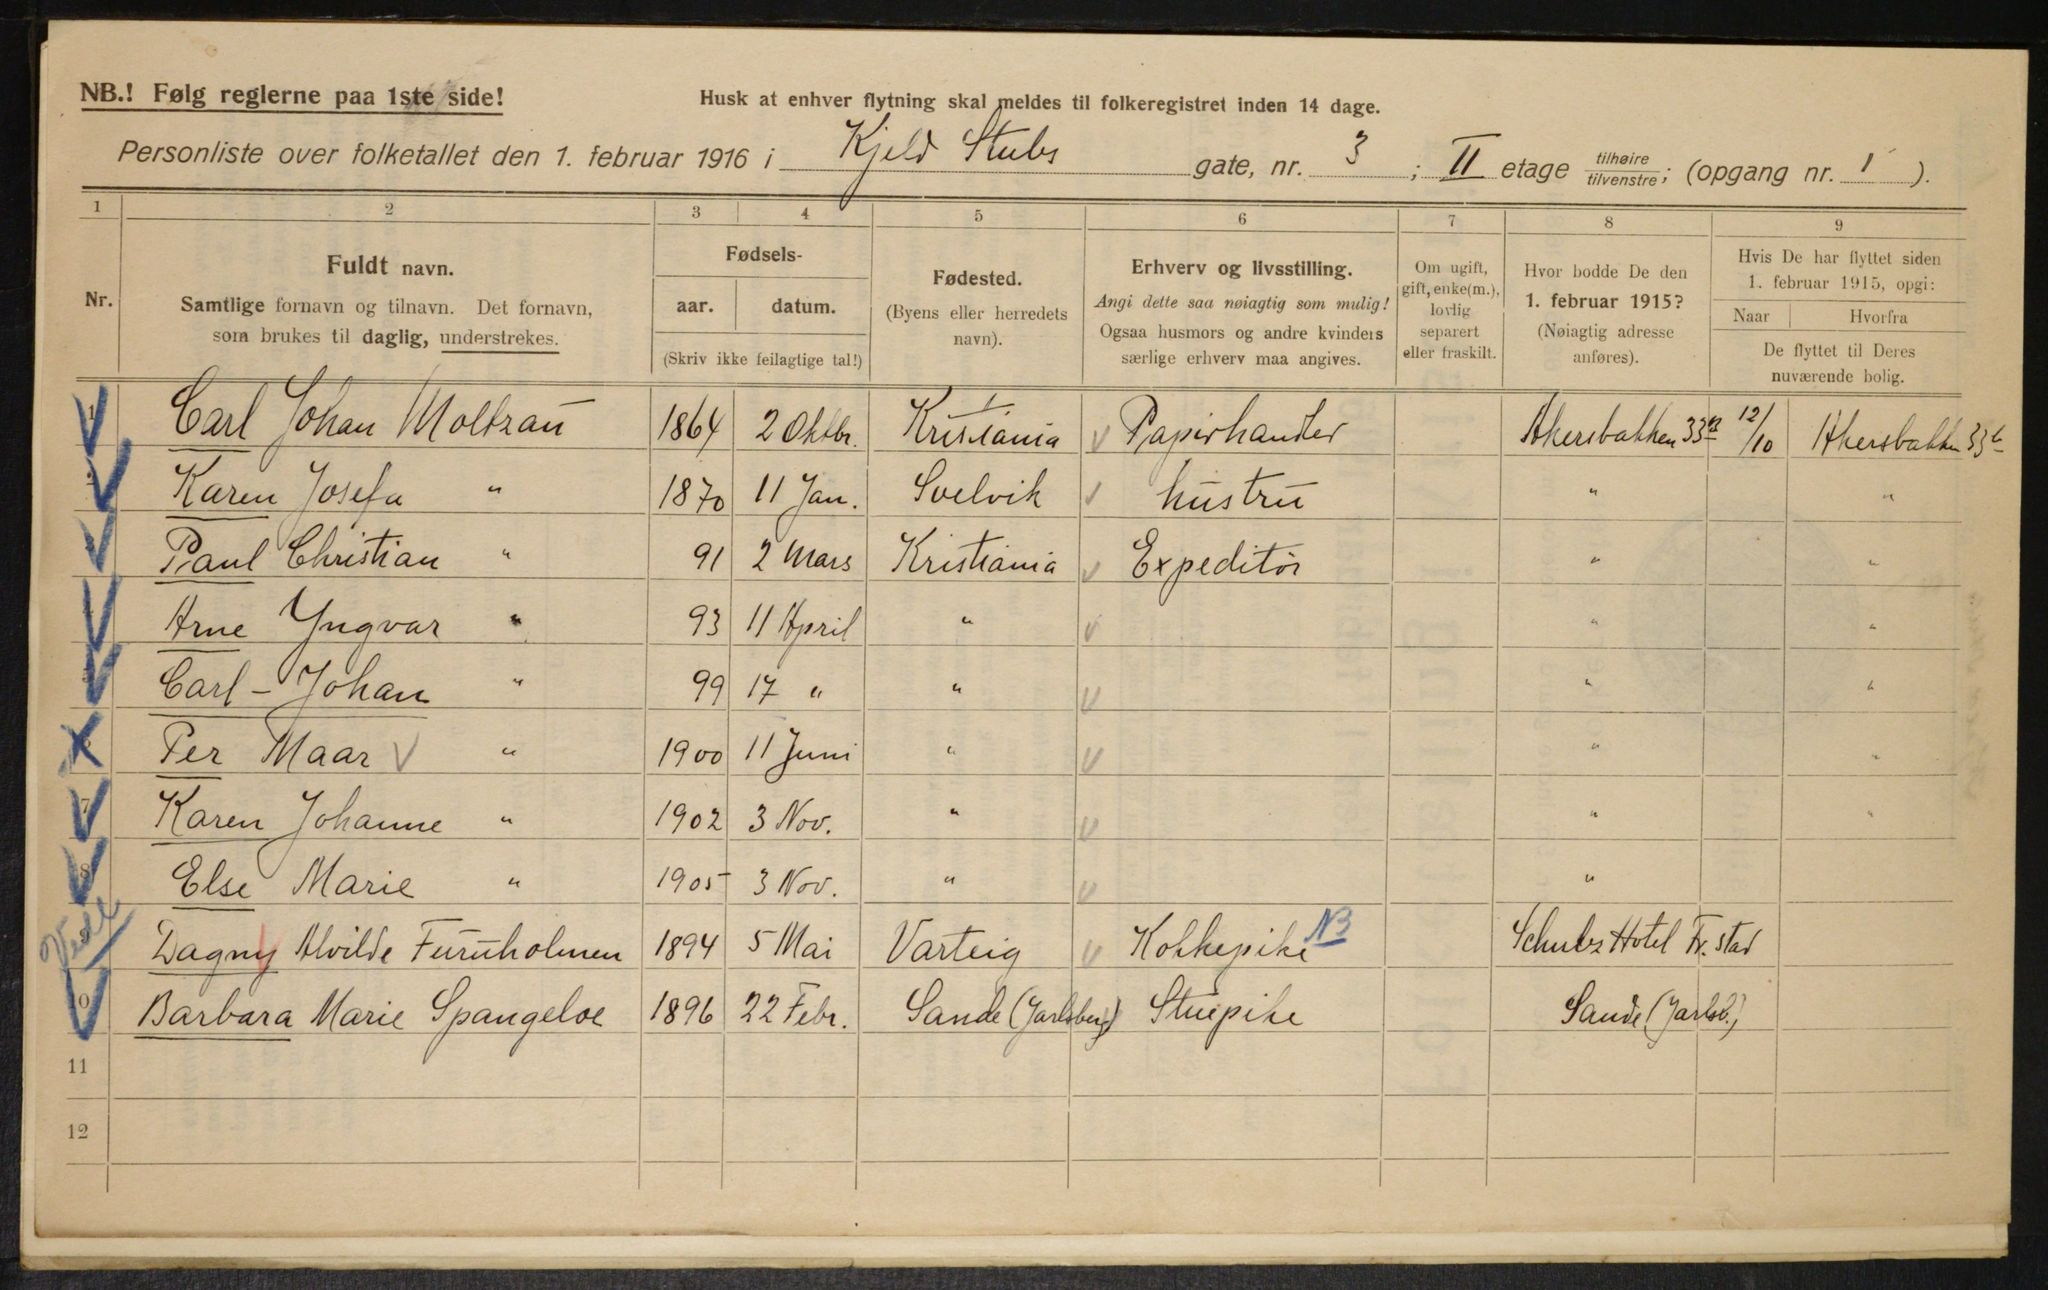 NB.! Følg reglerne paa 1ste side!
Husk at enhver flytning skal meldes til folkeregistret inden 14 dage.
Personliste over folketallet den 1. februar 1916 i Kjeld Stubs gate, nr. 3 ; II etage tilhøire tilvenstre; (opgang nr. 1 ).
1 2 3 4 5 6 7 8 9
Nr.
Fuldt navn.
Samtlige fornavn og tilnavn. Det fornavn,
som brukes til daglig, understrekes.
Fødsels-
aar. datum.
(Skriv ikke feilagtige tal!)
Fødested.
(Byens eller herredets
navn).
Erhverv og livsstilling.
Angi dette saa nøiagtig som mulig!
Ogsaa husmors og andre kvinders
særlige erhverv maa angives.
Om ugift,
gift, enke(m.),
lovlig
separert
eller fraskilt.
Hvor bodde De den
1. februar 1915?
(Nøiagtig adresse
anføres).
Hvis De har flyttet siden
1. februar 1915, opgi:
Naar Hvorfra
De flyttet til Deres
nuværende bolig.
1 Carl Johan Moltzau 1864 2 Oktbr. Kristiania Papirhandler Akersbakken 33 12/10 Akersbakken 33
2 Karen Josefa " 1870 11 Jan. Svelvik hustru " "
3 Paul Christian " 91 2 Mars Kristiania Expeditør " "
4 Arne Yngvar " 93 11 April " " "
5 Carl-Johan " 99 17 " " " "
6 Per Maar " 1900 11 Juni " " "
7 Karen Johanne " 1902 3 Nov. " " "
8 Else Marie " 1905 3 Nov. " "
9 Dagny Alvilde Furuholmen 1894 5 Mai Varteig Kokkepike NB Schulz Hotel Fr.stad
10 Barbara Marie Spangeloe 1896 22 Febr. Sande (Jarlsberg) Stuepike Sande (Jarlsb.)
11
12